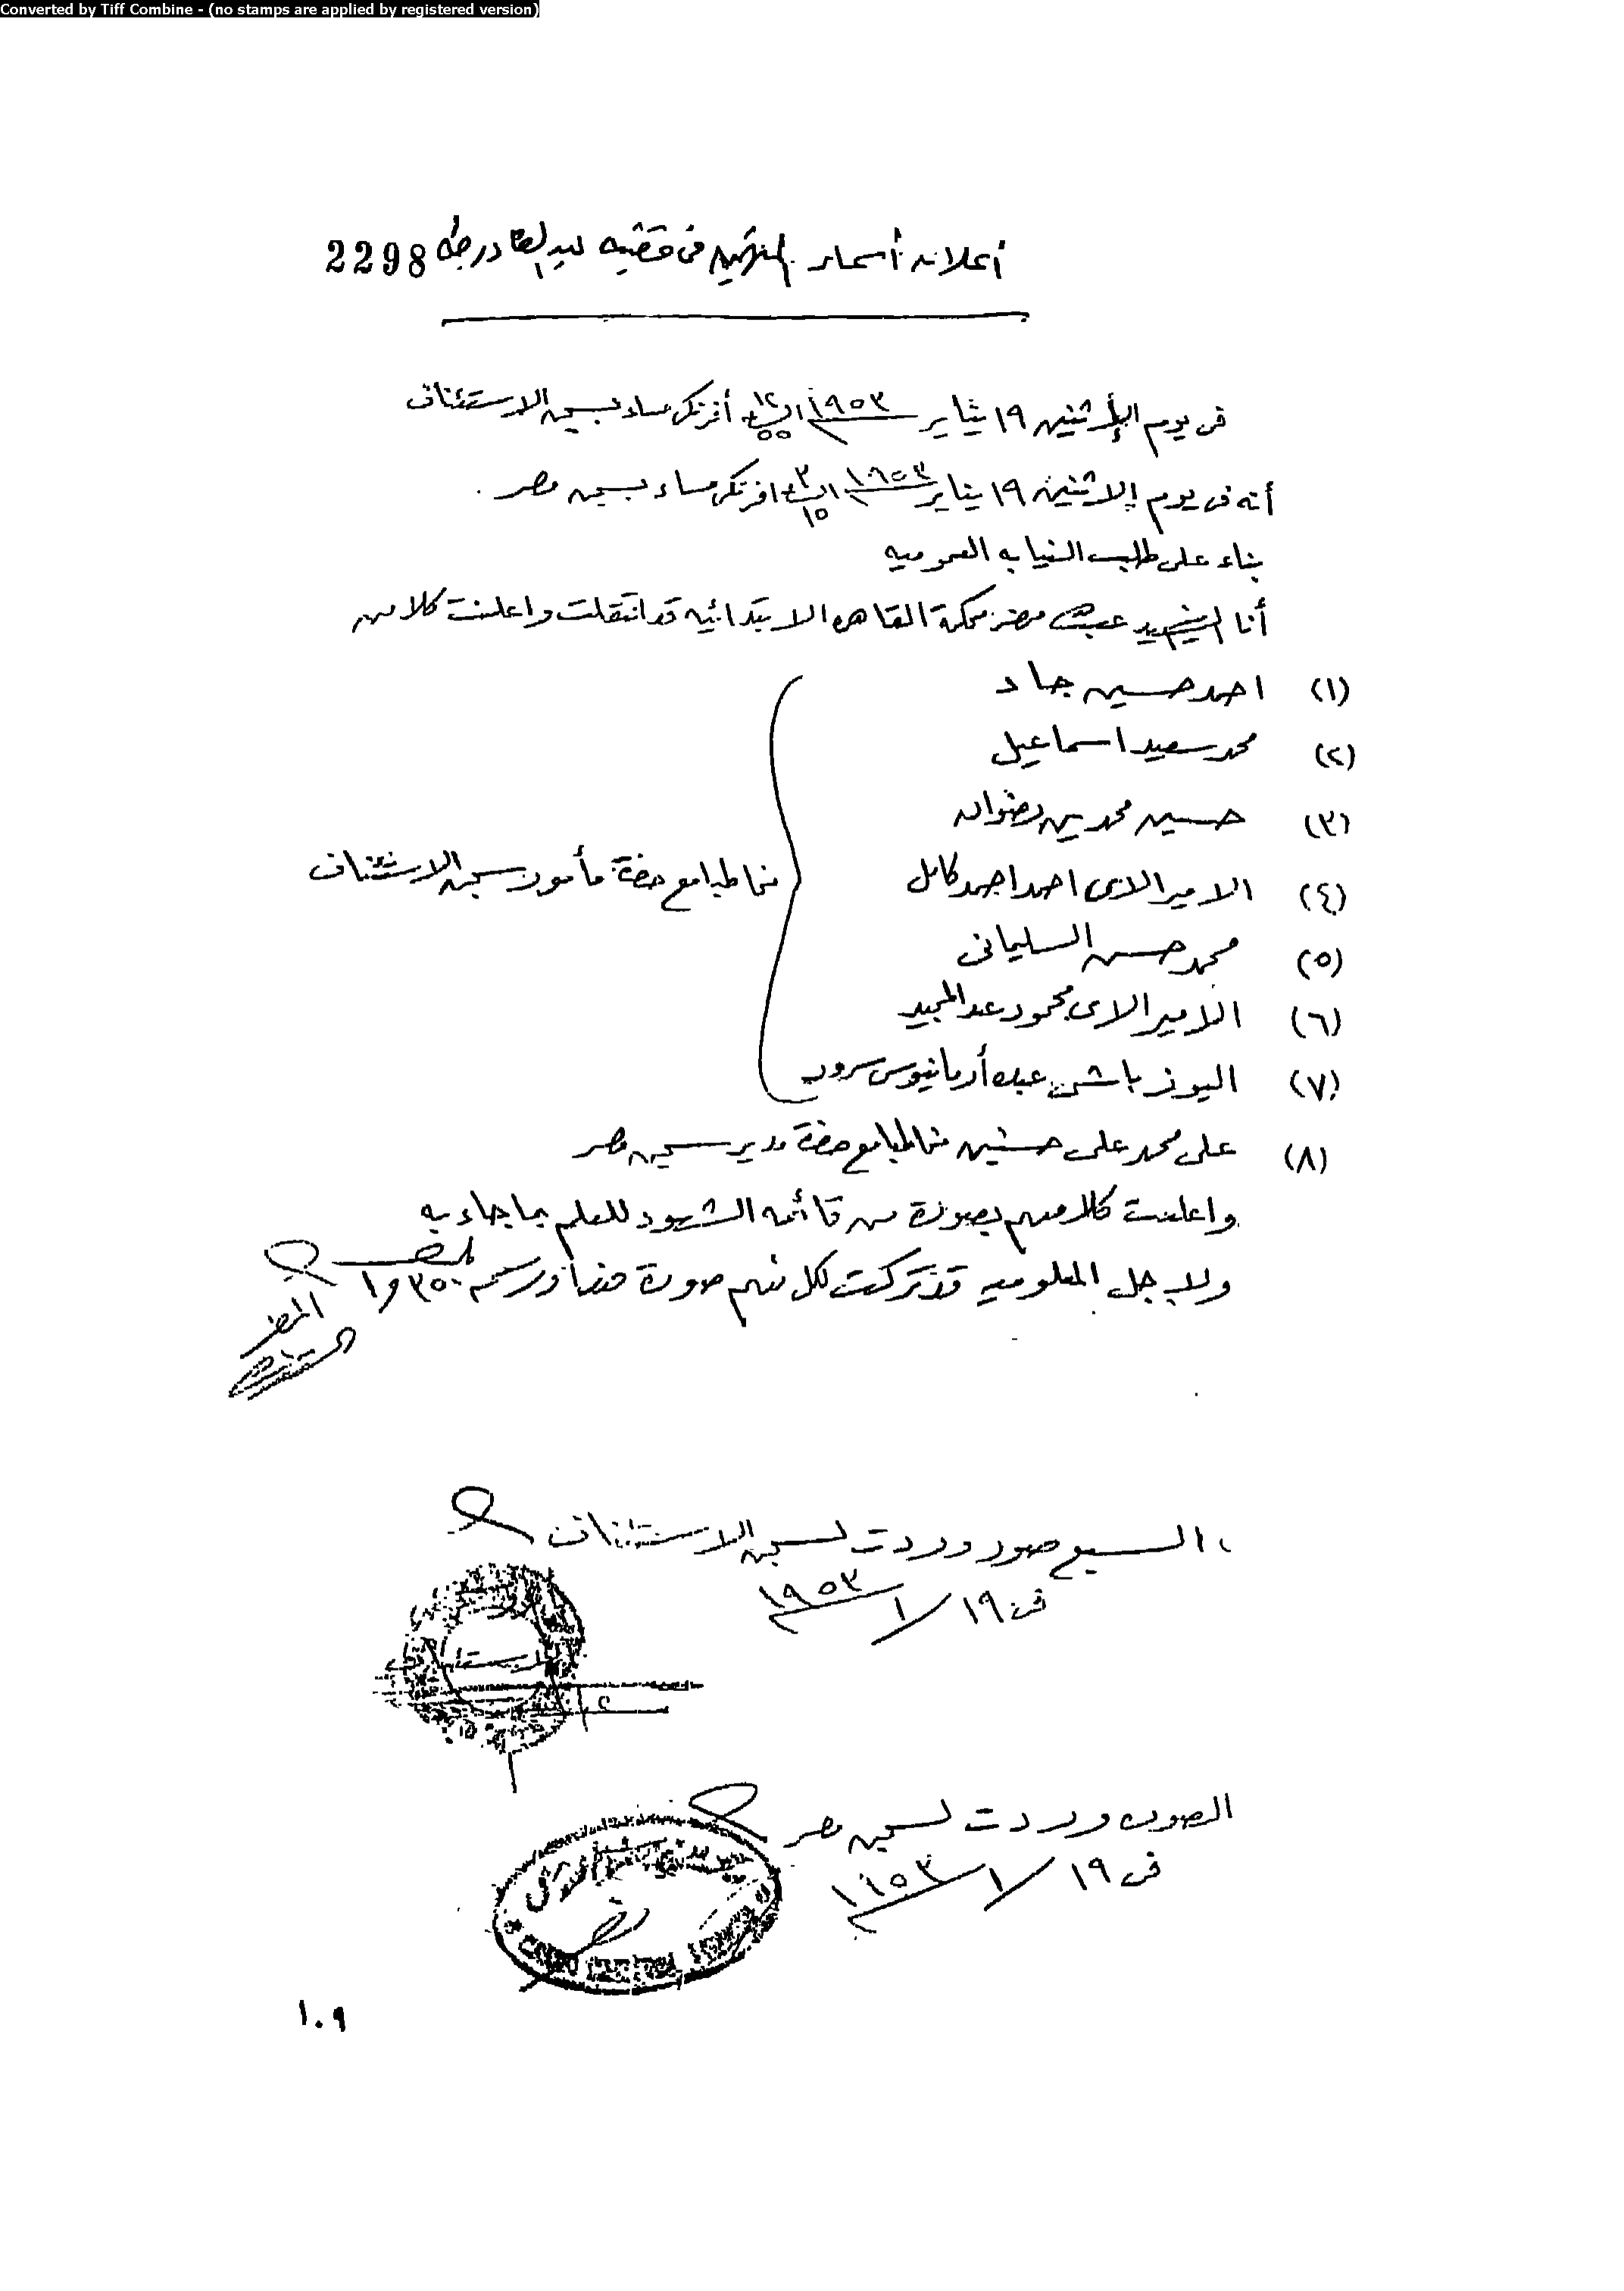 Converted by Tiff Combine - (no stamps are applied by registered version)
أعلان أسماء المتهمين فى قضيه عبد القادر طه 2298
فى يوم الأثنين ١٩ يناير ١٩٥٣ الساعة ١٢ ٥٥ أفرنكى مساء بسجن الاستئناف
أنه فى يوم الاثنين ١٩ يناير ١٩٥٣ الساعة ٣ ١٥ افرنكى مساء بسجن مصر .
بناء على طلب النيابه العموميه
أنا محضر محكمة القاهره الابتدائيه قد انتقلت واعلنت كلا من
(١) احمد حسين جاد
(٢) محمد سعيد اسماعيل
(٣) حسين محمدين رضوان
(٤) الاميرالاى احمد احمد كامل
(٥) محمد حسن السليمانى
(٦) الاميرالاى محمود عبد المجيد
(٧) اليوزباشى عبده أرمانيوس سرور
مخاطبا مع حضرة مأمور سجن الاستئناف
(٨) على محمد على حسنين مخاطبا مع حضرة مدير سجن مصر
واعلنت كلا منهم بصورة من قائمه الشهود للعلم بما جاء به
ولاجل المعلوميه قد تركت لكل منهم صورة
المحضر
السبع صور وردت لسجن الاستئناف
فى ١٩/١ ١٩٥٣
الصوره وردت لسجن مصر
فى ١٩/١ ١٩٥٣
١٠٩